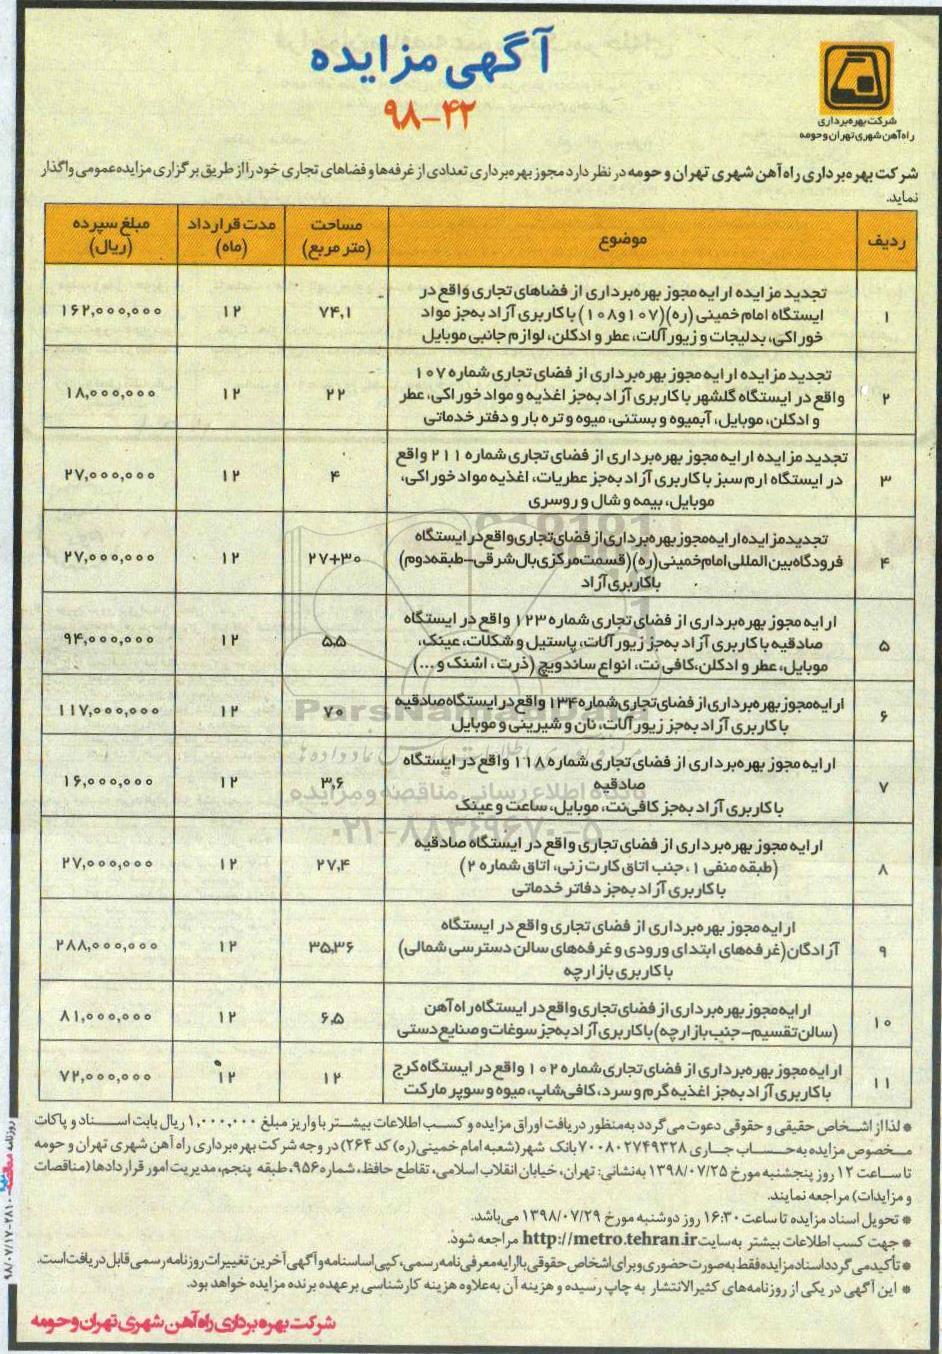 آگهی مزایده
۹۸-۴۲
شرکت بهره‌برداری
راه‌آهن شهری تهران و حومه
شرکت بهره‌برداری راه‌آهن شهری تهران و حومه در نظر دارد مجوز بهره‌برداری تعدادی از غرفه‌ها و فضاهای تجاری خود را از طریق برگزاری مزایده عمومی واگذار
نماید.
ردیف موضوع مساحت (متر مربع) مدت قرارداد (ماه) مبلغ سپرده (ریال)
۱ تجدید مزایده ارایه مجوز بهره‌برداری از فضاهای تجاری واقع در
ایستگاه امام خمینی (ره) (۱۰۷ و ۱۰۸) با کاربری آزاد به‌جز مواد ۷۴,۱ ۱۲ ۱۶۲,۰۰۰,۰۰۰
خوراکی، بدلیجات و زیورآلات، عطر و ادکلن، لوازم جانبی موبایل
تجدید مزایده ارایه مجوز بهره‌برداری از فضای تجاری شماره ۱۰۷
۲ واقع در ایستگاه گلشهر با کاربری آزاد به‌جز اغذیه و مواد خوراکی، عطر ۲۲ ۱۲ ۱۸,۰۰۰,۰۰۰
و ادکلن، موبایل، آبمیوه و بستنی، میوه و تره بار و دفتر خدماتی
تجدید مزایده ارایه مجوز بهره‌برداری از فضای تجاری شماره ۲۱۱ واقع
۳ در ایستگاه ارم سبز با کاربری آزاد به‌جز عطریات، اغذیه مواد خوراکی، ۴ ۱۲ ۲۷,۰۰۰,۰۰۰
موبایل، بیمه و شال و روسری
تجدید مزایده ارایه مجوز بهره‌برداری از فضای تجاری واقع در ایستگاه
۴ فرودگاه بین المللی امام خمینی (ره) (قسمت مرکزی بال شرقی-طبقه دوم) ۲۷+۳۰ ۱۲ ۲۷,۰۰۰,۰۰۰
با کاربری آزاد
ارایه مجوز بهره‌برداری از فضای تجاری شماره ۱۲۳ واقع در ایستگاه
۵ صادقیه با کاربری آزاد به‌جز زیورآلات، پاستیل و شکلات، عینک، ۵,۵ ۱۲ ۹۴,۰۰۰,۰۰۰
موبایل، عطر و ادکلن، کافی نت، انواع ساندویچ (ذرت، اشنک و ...)
۶ ارایه مجوز بهره‌برداری از فضای تجاری شماره ۱۳۴ واقع در ایستگاه صادقیه ۷۰ ۱۲ ۱۱۷,۰۰۰,۰۰۰
با کاربری آزاد به‌جز زیورآلات، نان و شیرینی و موبایل
ارایه مجوز بهره‌برداری از فضای تجاری شماره ۱۱۸ واقع در ایستگاه
۷ صادقیه ۳,۶ ۱۲ ۱۶,۰۰۰,۰۰۰
با کاربری آزاد به‌جز کافی‌نت، موبایل، ساعت و عینک
ارایه مجوز بهره‌برداری از فضای تجاری واقع در ایستگاه صادقیه
۸ (طبقه منفی ۱، جنب اتاق کارت زنی، اتاق شماره ۲) ۲۷,۴ ۱۲ ۲۷,۰۰۰,۰۰۰
با کاربری آزاد به‌جز دفاتر خدماتی
ارایه مجوز بهره‌برداری از فضای تجاری واقع در ایستگاه
۹ آزادگان (غرفه‌های ابتدای ورودی و غرفه‌های سالن دسترسی شمالی) ۳۵,۳۶ ۱۲ ۲۸۸,۰۰۰,۰۰۰
با کاربری بازارچه
۱۰ ارایه مجوز بهره‌برداری از فضای تجاری واقع در ایستگاه راه آهن ۶,۵ ۱۲ ۸۱,۰۰۰,۰۰۰
(سالن تقسیم-جنب بازارچه) با کاربری آزاد به‌جز سوغات و صنایع دستی
۱۱ ارایه مجوز بهره‌برداری از فضای تجاری شماره ۱۰۲ واقع در ایستگاه کرج ۱۲ ۱۲ ۷۲,۰۰۰,۰۰۰
با کاربری آزاد به‌جز اغذیه گرم و سرد، کافی‌شاپ، میوه و سوپر مارکت
* لذا از اشخاص حقیقی و حقوقی دعوت می گردد به‌منظور دریافت اوراق مزایده و کسب اطلاعات بیشتر با واریز مبلغ ۱,۰۰۰,۰۰۰ ریال بابت اسناد و پاکات
مخصوص مزایده به حساب جاری ۷۰۰۸۰۲۷۴۹۳۲۸ بانک شهر (شعبه امام خمینی (ره) کد ۲۶۴) در وجه شرکت بهره‌برداری راه آهن شهری تهران و حومه
تا ساعت ۱۲ روز پنجشنبه مورخ ۱۳۹۸/۰۷/۲۵ به‌نشانی: تهران، خیابان انقلاب اسلامی، تقاطع حافظ، شماره ۹۵۶، طبقه پنجم، مدیریت امور قراردادها (مناقصات
و مزایدات) مراجعه نمایند.
* تحویل اسناد مزایده تا ساعت ۱۶:۳۰ روز دوشنبه مورخ ۱۳۹۸/۰۷/۲۹ می‌باشد.
* جهت کسب اطلاعات بیشتر به‌سایت http://metro.tehran.ir مراجعه شود.
* تأکید می گردد اسناد مزایده فقط به‌صورت حضوری و برای اشخاص حقوقی با ارایه معرفی نامه رسمی، کپی اساسنامه و آگهی آخرین تغییرات روزنامه رسمی قابل دریافت است.
* این آگهی در یکی از روزنامه‌های کثیرالانتشار به چاپ رسیده و هزینه آن به‌علاوه هزینه کارشناسی بر عهده برنده مزایده خواهد بود.
شرکت بهره‌برداری راه‌آهن شهری تهران و حومه
روزنامه مناقصه ۲۸۱۰-۹۸/۰۷/۱۷
ParsNamadData
پایگاه اطلاع رسانی مناقصه و مزایده
۰۲۱-۸۸۳۴۹۶۷۰-۵